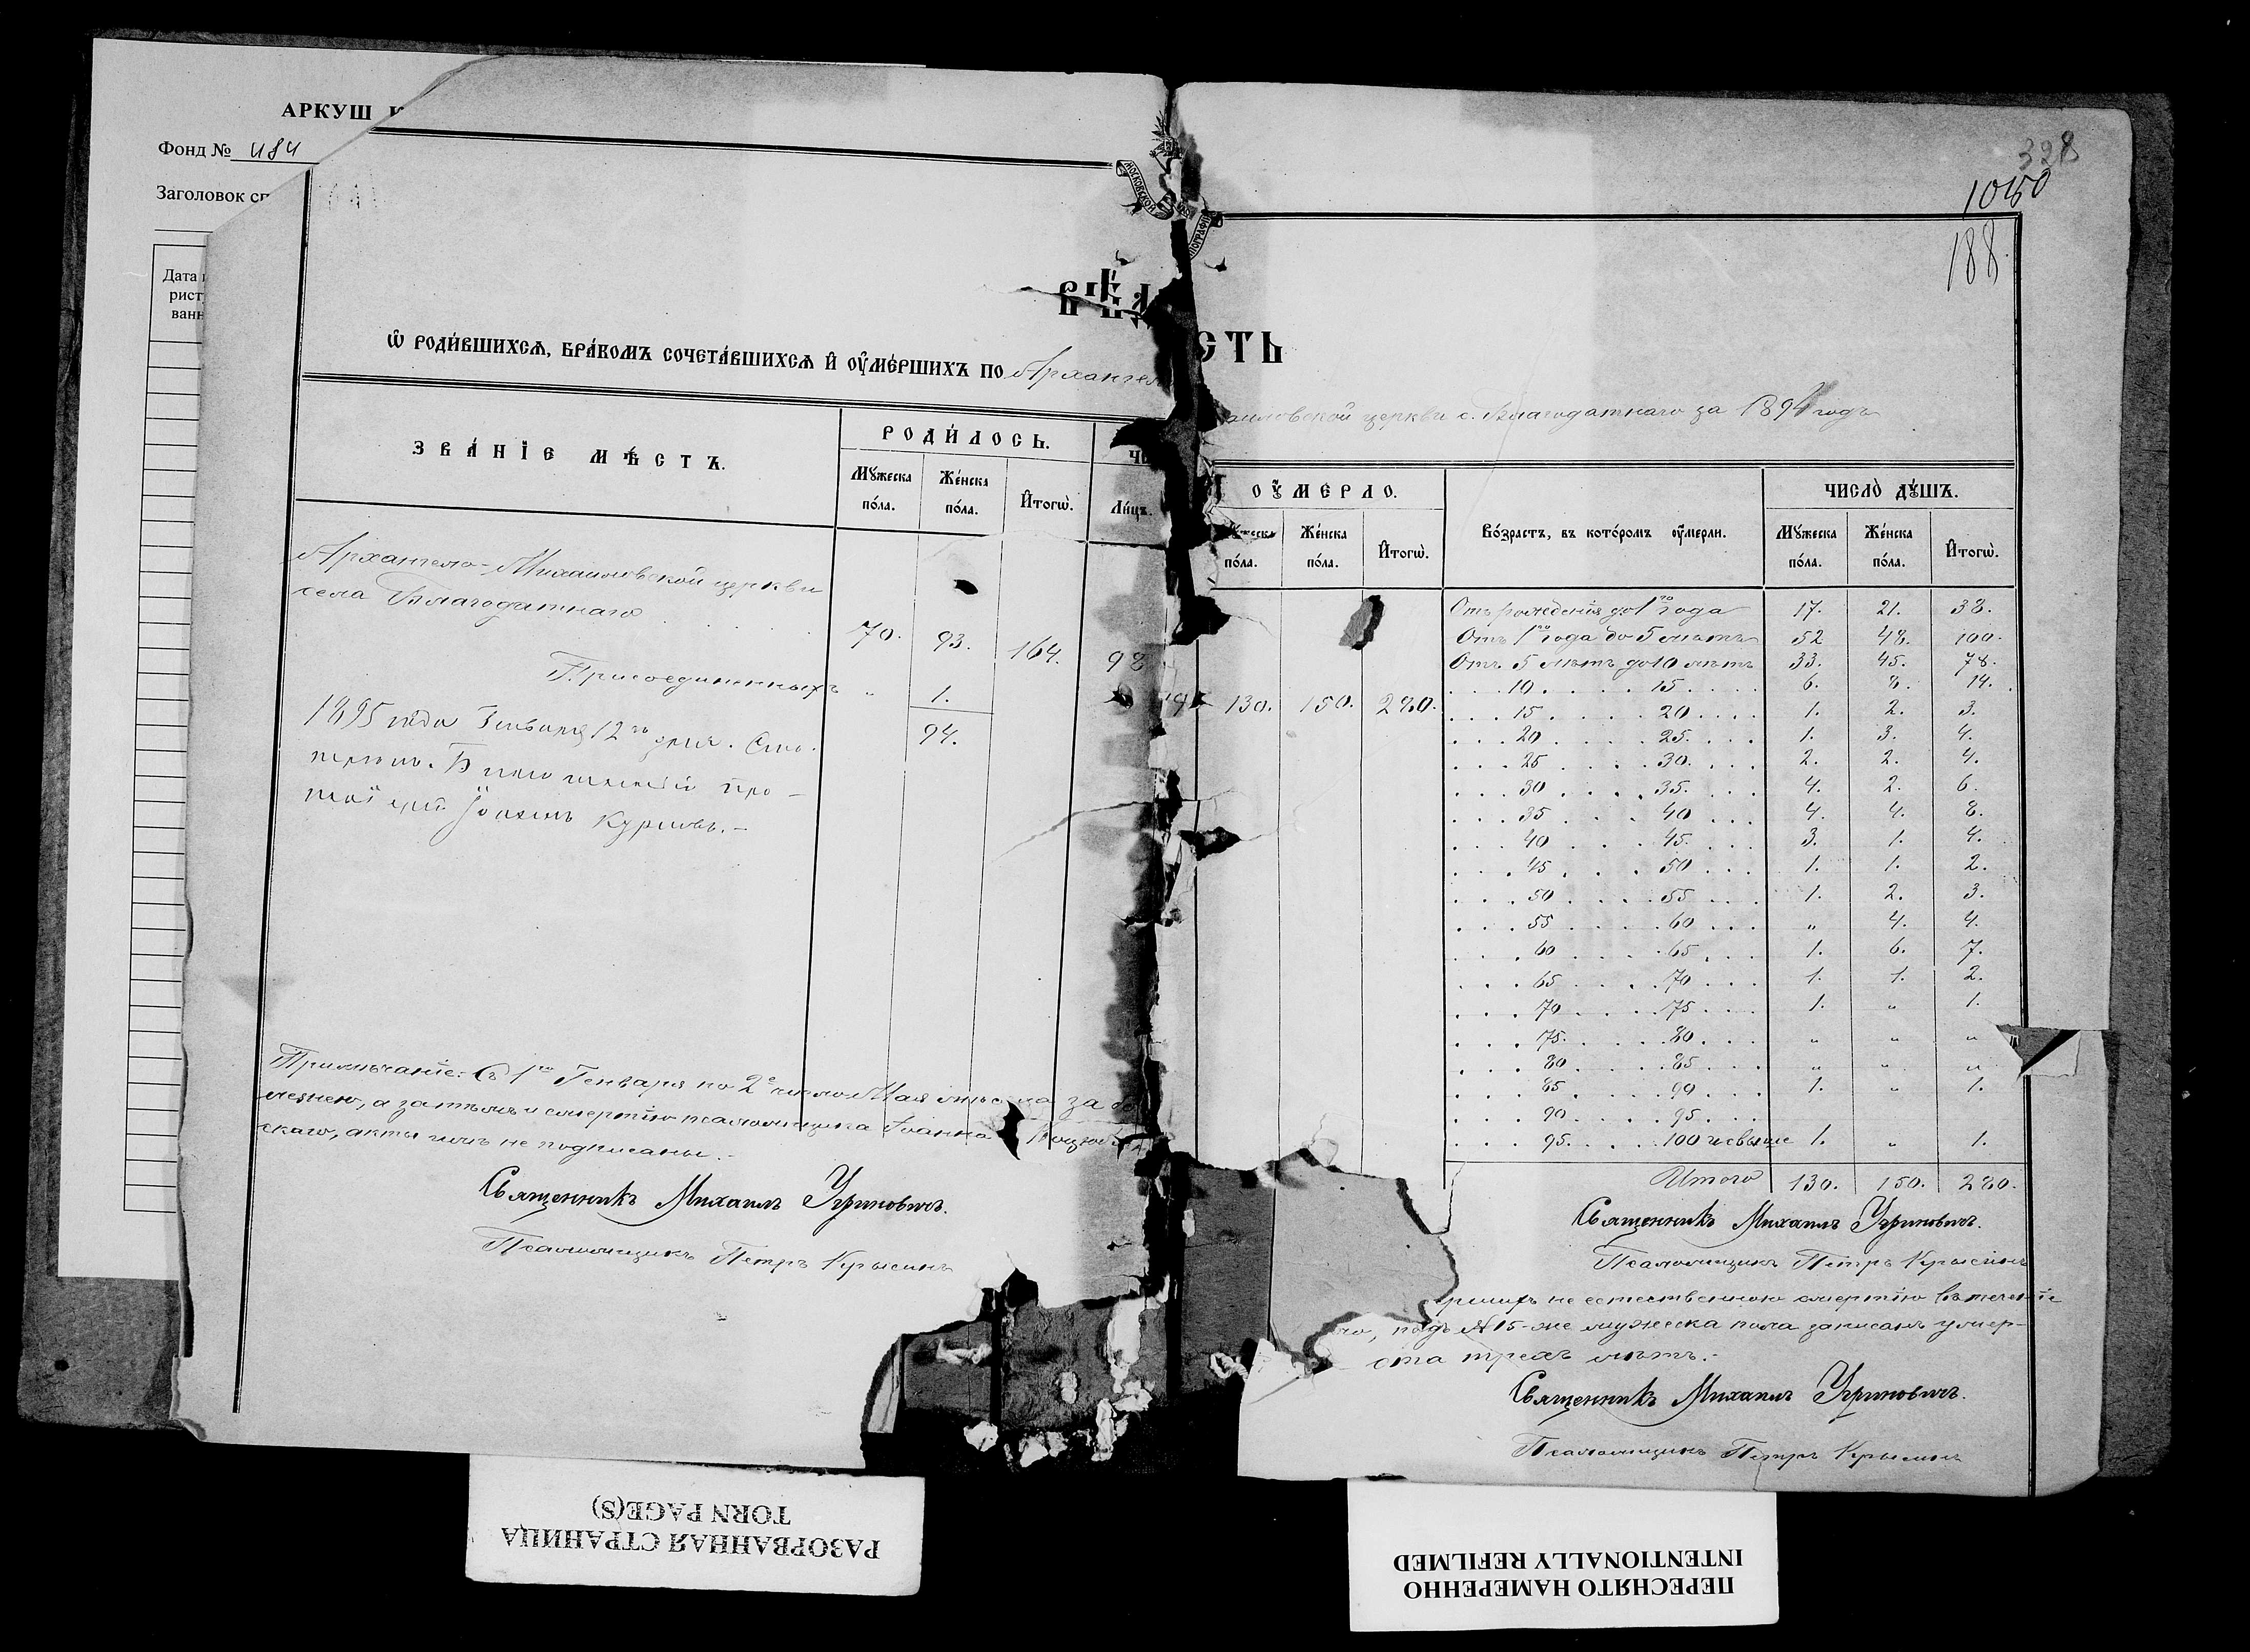 АРКУШ
Фонд № 484
Заголовок
Дата
рист
ван
МОСКОВСКОЙ
328
1050
188.
ВѢД СТЬ
Ѡ РОДИ́ВШИХСѦ, БРА́КОМЪ СОЧЕТА́ВШИХСѦ И҆ ОУ҆МЕ́РШИХЪ ПО Архангел
аиловской церкви с. Благодатнаго за 1894 годъ
ЗВА́НІЕ МѢ́СТЪ.
РОДИ́ЛОСЬ.
Мꙋ́жеска по́ла.
Же́нска по́ла.
И҆тогѡ̀.
Ли́цъ.
ОУ҆́МЕРЛО.
Мꙋ́жеска по́ла.
Же́нска по́ла.
И҆тогѡ̀.
Во́зрастъ, въ кото́ромъ оу҆́мерли.
ЧИСЛО̀ ДꙊ́ШЪ.
Мꙋ́жеска по́ла.
Же́нска по́ла.
И҆тогѡ̀.
Архангело-Михаиловской церкви
села Благодатнаго
70. 93. 164. 98
Присоединенныхъ „ 1.
94.
130. 150. 280.
1895 года Января 12го дня. Смо-
трѣлъ. Благочинный про-
тоіерей Іоаннъ Куриловъ.–
Отъ рожденія до 1го года 17. 21. 38.
Отъ 1го года до 5 лѣтъ 52 48. 100.
Отъ 5 лѣтъ до 10 лѣтъ 33. 45. 78.
. . . 10 . . . . . 15 . . . . 6. 8. 14.
. . . 15 . . . . . 20 . . . . 1. 2. 3.
. . . 20 . . . . . 25. . . . 1. 3. 4.
. . . 25 . . . . . 30. . . . 2. 2. 4.
. . . 30 . . . . . 35. . . . 4. 2. 6.
. . . 35 . . . . . 40 . . . 4. 4. 8.
. . . 40 . . . . . 45. . . . 3. 1. 4.
. . . 45 . . . . . 50 . . . 1. 1. 2.
. . . 50 . . . . . 55 . . . 1. 2. 3.
. . . 55 . . . . . 60 . . . „ 4. 4.
. . . 60 . . . . . 65 . . . 1. 6. 7.
. . . 65 . . . . . 70 . . . 1. 1. 2.
. . . 70 . . . . . 75 . . . 1. „ 1.
. . . 75. . . . . . 80 . . . „ „ „
. . . 80 . . . . . 85 . . . „ „ „
. . . 85 . . . . . 90 . . . 1. „ 1.
. . . 90 . . . . . 95 . . .
. . . 95. . . . . 100 и свыше 1. „ 1.
Итого 130. 150. 280.
Примѣчаніе: Съ 1го Генваря по 2е число Мая мѣсяца за бо
лезнею, а затѣмъ и смертію псаломщика Іоанна
скаго, акты имъ не подписаны.–
Священникъ Михаилъ Угриновичъ.
Псаломщикъ Петръ Крысинъ
Священникъ Михаилъ Угриновичъ.
Псаломщикъ Петръ Крысинъ
ршихъ не естественною смертію въ теченіе
го, подъ №15-же мужеска пола записанъ умер-
ста трехъ лѣтъ.–
Священникъ Михаилъ Угриновичъ.
Псаломщикъ Петръ Крысинъ
РАЗОРВАННАЯ СТРАНИЦА
TORN PAGE(S)
ПЕРЕСНЯТО НАМЕРЕННО
INTENTIONALLY REFILMED